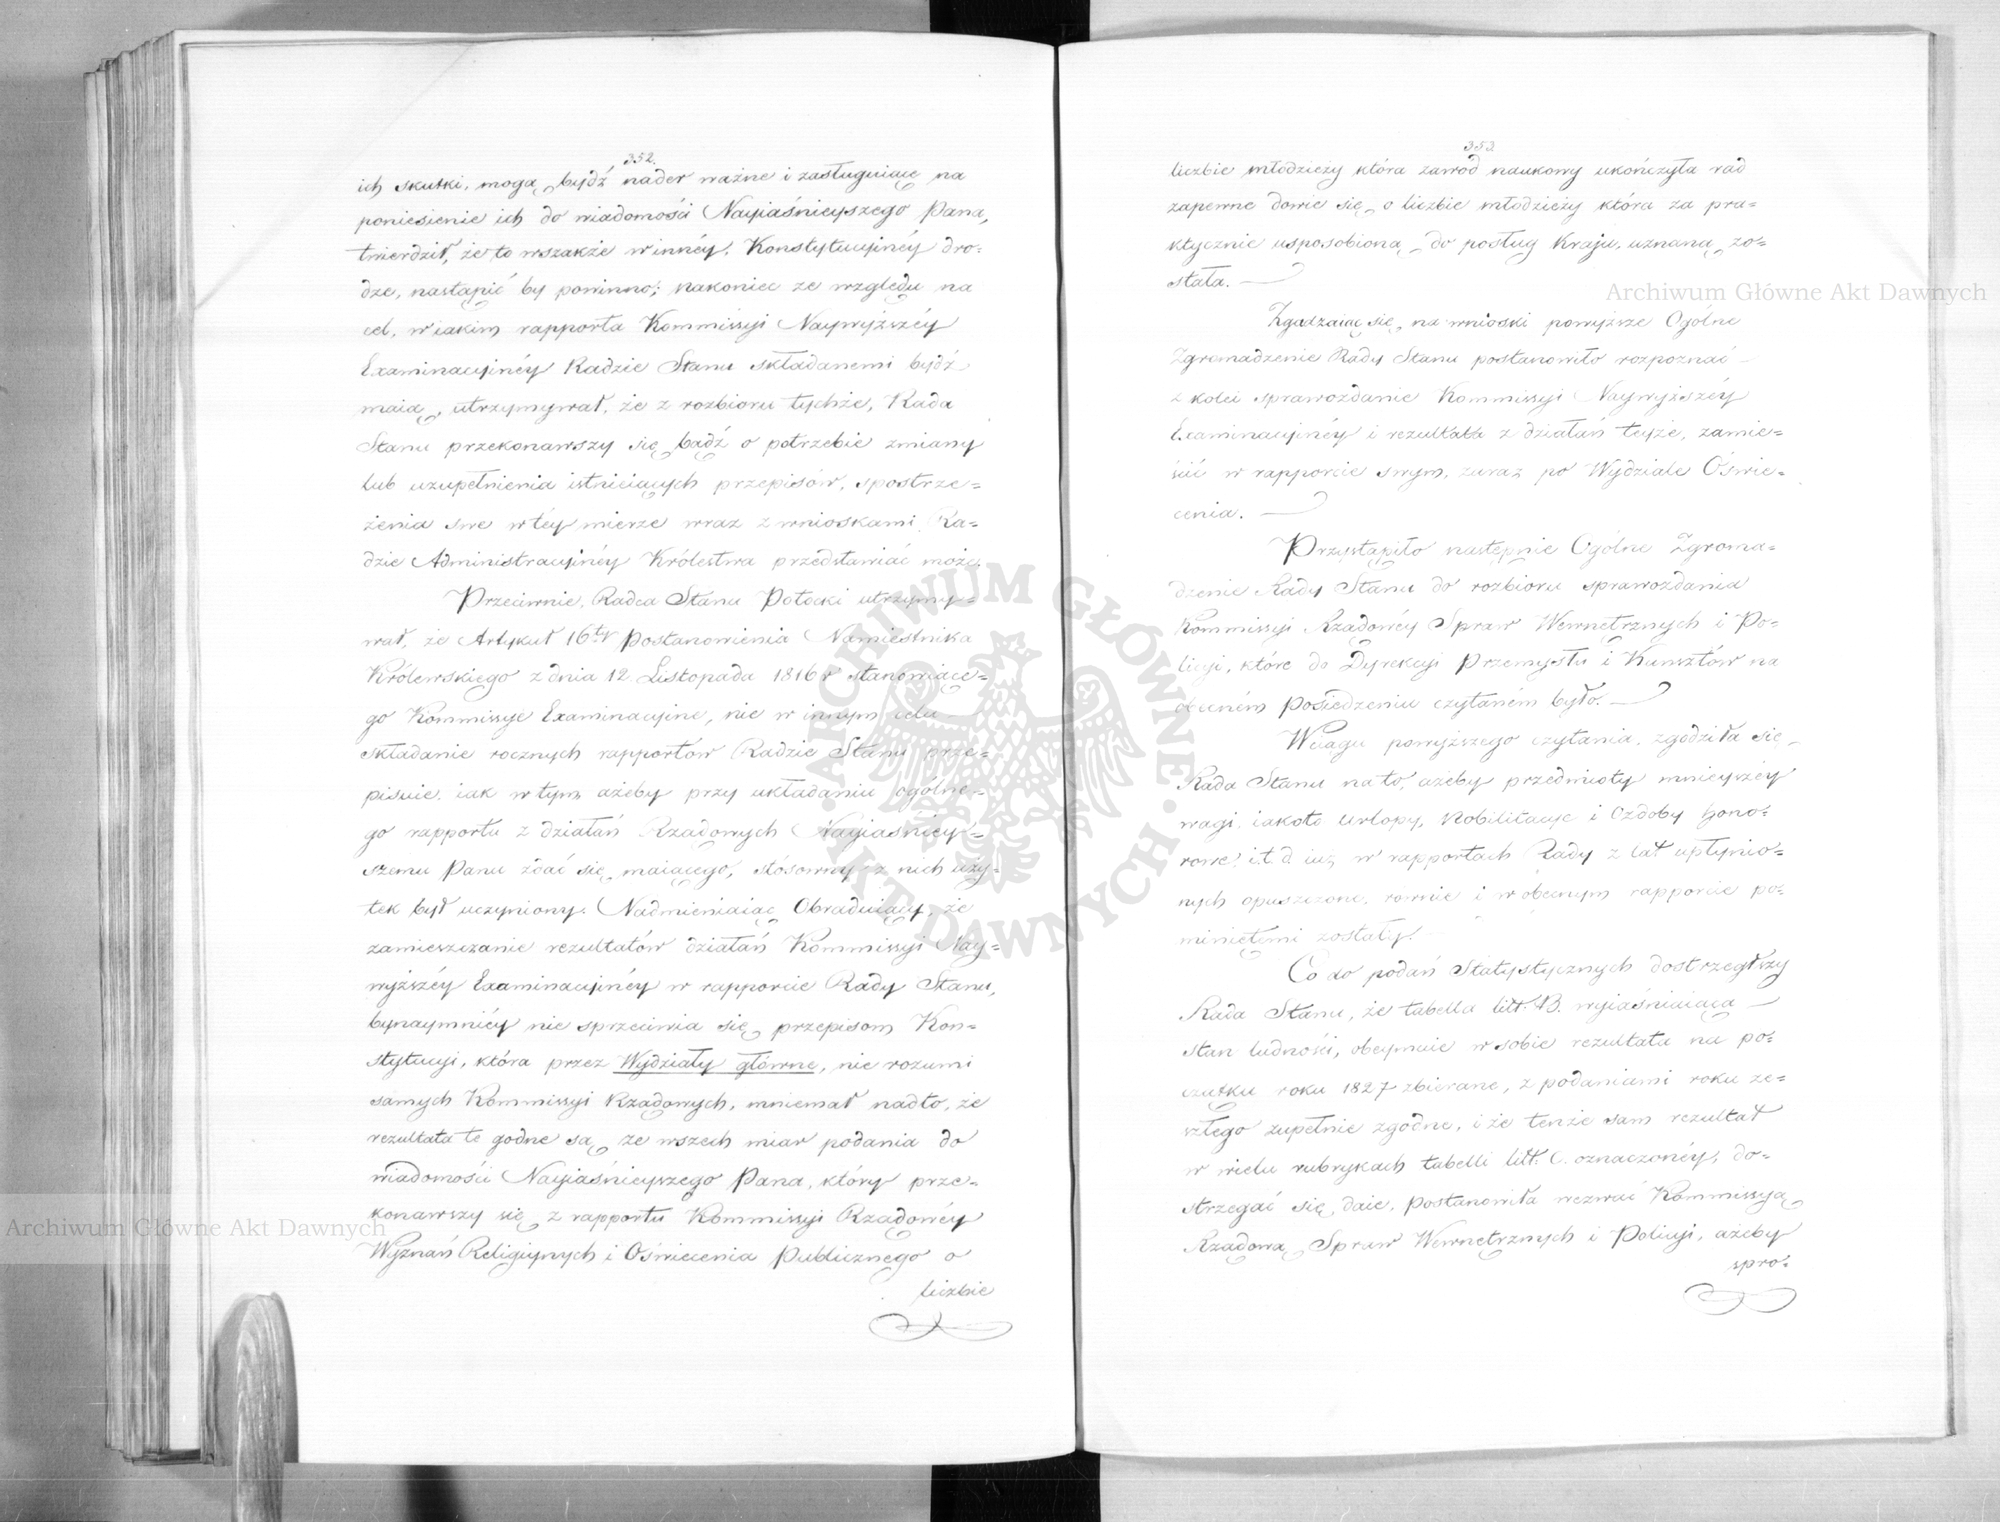 352.
ich skutki, mogą bydź nader ważne i zasługuiące na
poniesienie ich do wiadomości Nayiaśnieyszego Pana,
twierdził, że to wszakże w inney, Konstytucyinéy dro=
dze, nastąpić by powinno; nakoniec ze względu na
cel, w iakim rapporta Kommissyi Naywyższéy
Examinacyinéy Radzie Stanu składanemi bydź
maią, utrzymywał, że z rozbioru tychże, Rada
Stanu przekonawszy się bądź o potrzebie zmiany
lub uzupełnienia istnieiących przepisów, spostrze=
żenia swe w téy mierze wraz z wnioskami, Ra=
dzie Administracyinéy Królestwa przedstawiać może.
Przeciwnie, Radca Stanu Potocki utrzymy=
wał, że Artykuł 16ty Postanowienia Namiestnika
Królewskiego z dnia 12 Listopada 1816 r stanowiące=
go Kommissyie Examinacyine, nie w innym celu
składanie rocznych rapportów Radzie Stanu prze=
pisuie, iak w tym ażeby przy układaniu ogólne=
go rapportu z działań Rządowych Nayiaśniey=
szemu Panu zdać się maiącego, stósowny z nich uży=
tek był uczyniony. Nadmieniaiąc Obraduiący, że
zamieszczanie rezultatów działań Kommissyi Nay=
wyższéy Examinacyinéy w rapporcie Rady Stanu,
bynaymniéy nie sprzeciwia się przepisom Kon=
stytucyi, która przez Wydziały główne, nie rozumi
samych Kommissyi Rządowych, mniemał nadto, że
rezultata te godne są ze wszech miar podania do
wiadomości Nayiaśnieyszego Pana, który prze=
konawszy się z rapportu Kommissyi Rządowéy
Wyznań Religiynych i Oświecenia Publicznego o
liczbie
353
liczbie młodzieży która zawód naukowy ukończyła rad
zapewne dowie się o liczbie młodzieży która za pra=
ktycznie usposobioną do posług Kraju, uznaną zo=
stała.
Zgadzaiąc się na wnioski powyższe Ogólne
Zgromadzenie Rady Stanu postanowiło rozpoznać
z kolei sprawozdanie Kommissyi Naywyższéy
Examinacyinéy i rezultata z działań teyże, zamie=
ścić w rapporcie swym, zaraz po Wydziale Oświe=
cenia.
Przystąpiło następnie Ogólne Zgroma=
dzenie Rady Stanu do rozbioru sprawozdania
Kommissyi Rządowéy Spraw Wewnętrznych i Po=
licyi, które do Dyrekcyi Przemysłu i Kunsztów na
obecném Posiedzeniu czytaném było.
W ciągu powyższego czytania, zgodziła się
Rada Stanu na to, ażeby przedmioty mnieyszéy
wagi, iakoto Urlopy, Nobilitacye i Ozdoby hono=
rowe, i.t.d. iuż w rapportach Rady z lat upłynio=
nych opuszczone, równie i w obecnym rapporcie po=
miniętemi zostały.
Co do podań Statystycznych dostrzegłszy
Rada Stanu, że tabella litt: B. wyiaśniaiąca
stan ludności, obeymuie w sobie rezultata na po=
czątku roku 1827 zbierane, z podaniami roku ze=
szłego zupełnie zgodne, i że tenże sam rezultat
w wielu rubrykach tabelli litt: C. oznaczonéy, do=
strzegać się daie, postanowiła wezwać Kommissyą
Rządową Spraw Wewnętrznych i Policyi, ażeby
spro=
Archiwum Główne Akt Dawnych
Archiwum Główne Akt Dawnych
ARCHIWUM GŁÓWNE AKT DAWNYCH